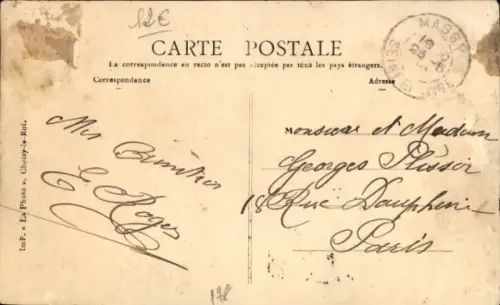 12€
CARTE POSTALE
La correspondance au recto n'est pas acceptée par tous les pays étrangers.
Correspondance
Adresse
MASSY
Monsieur et Madam
Georges
18 Rue Dauphine
Paris
E. Roger
Imp. « La Photo », Choisy-le-Roi.
178